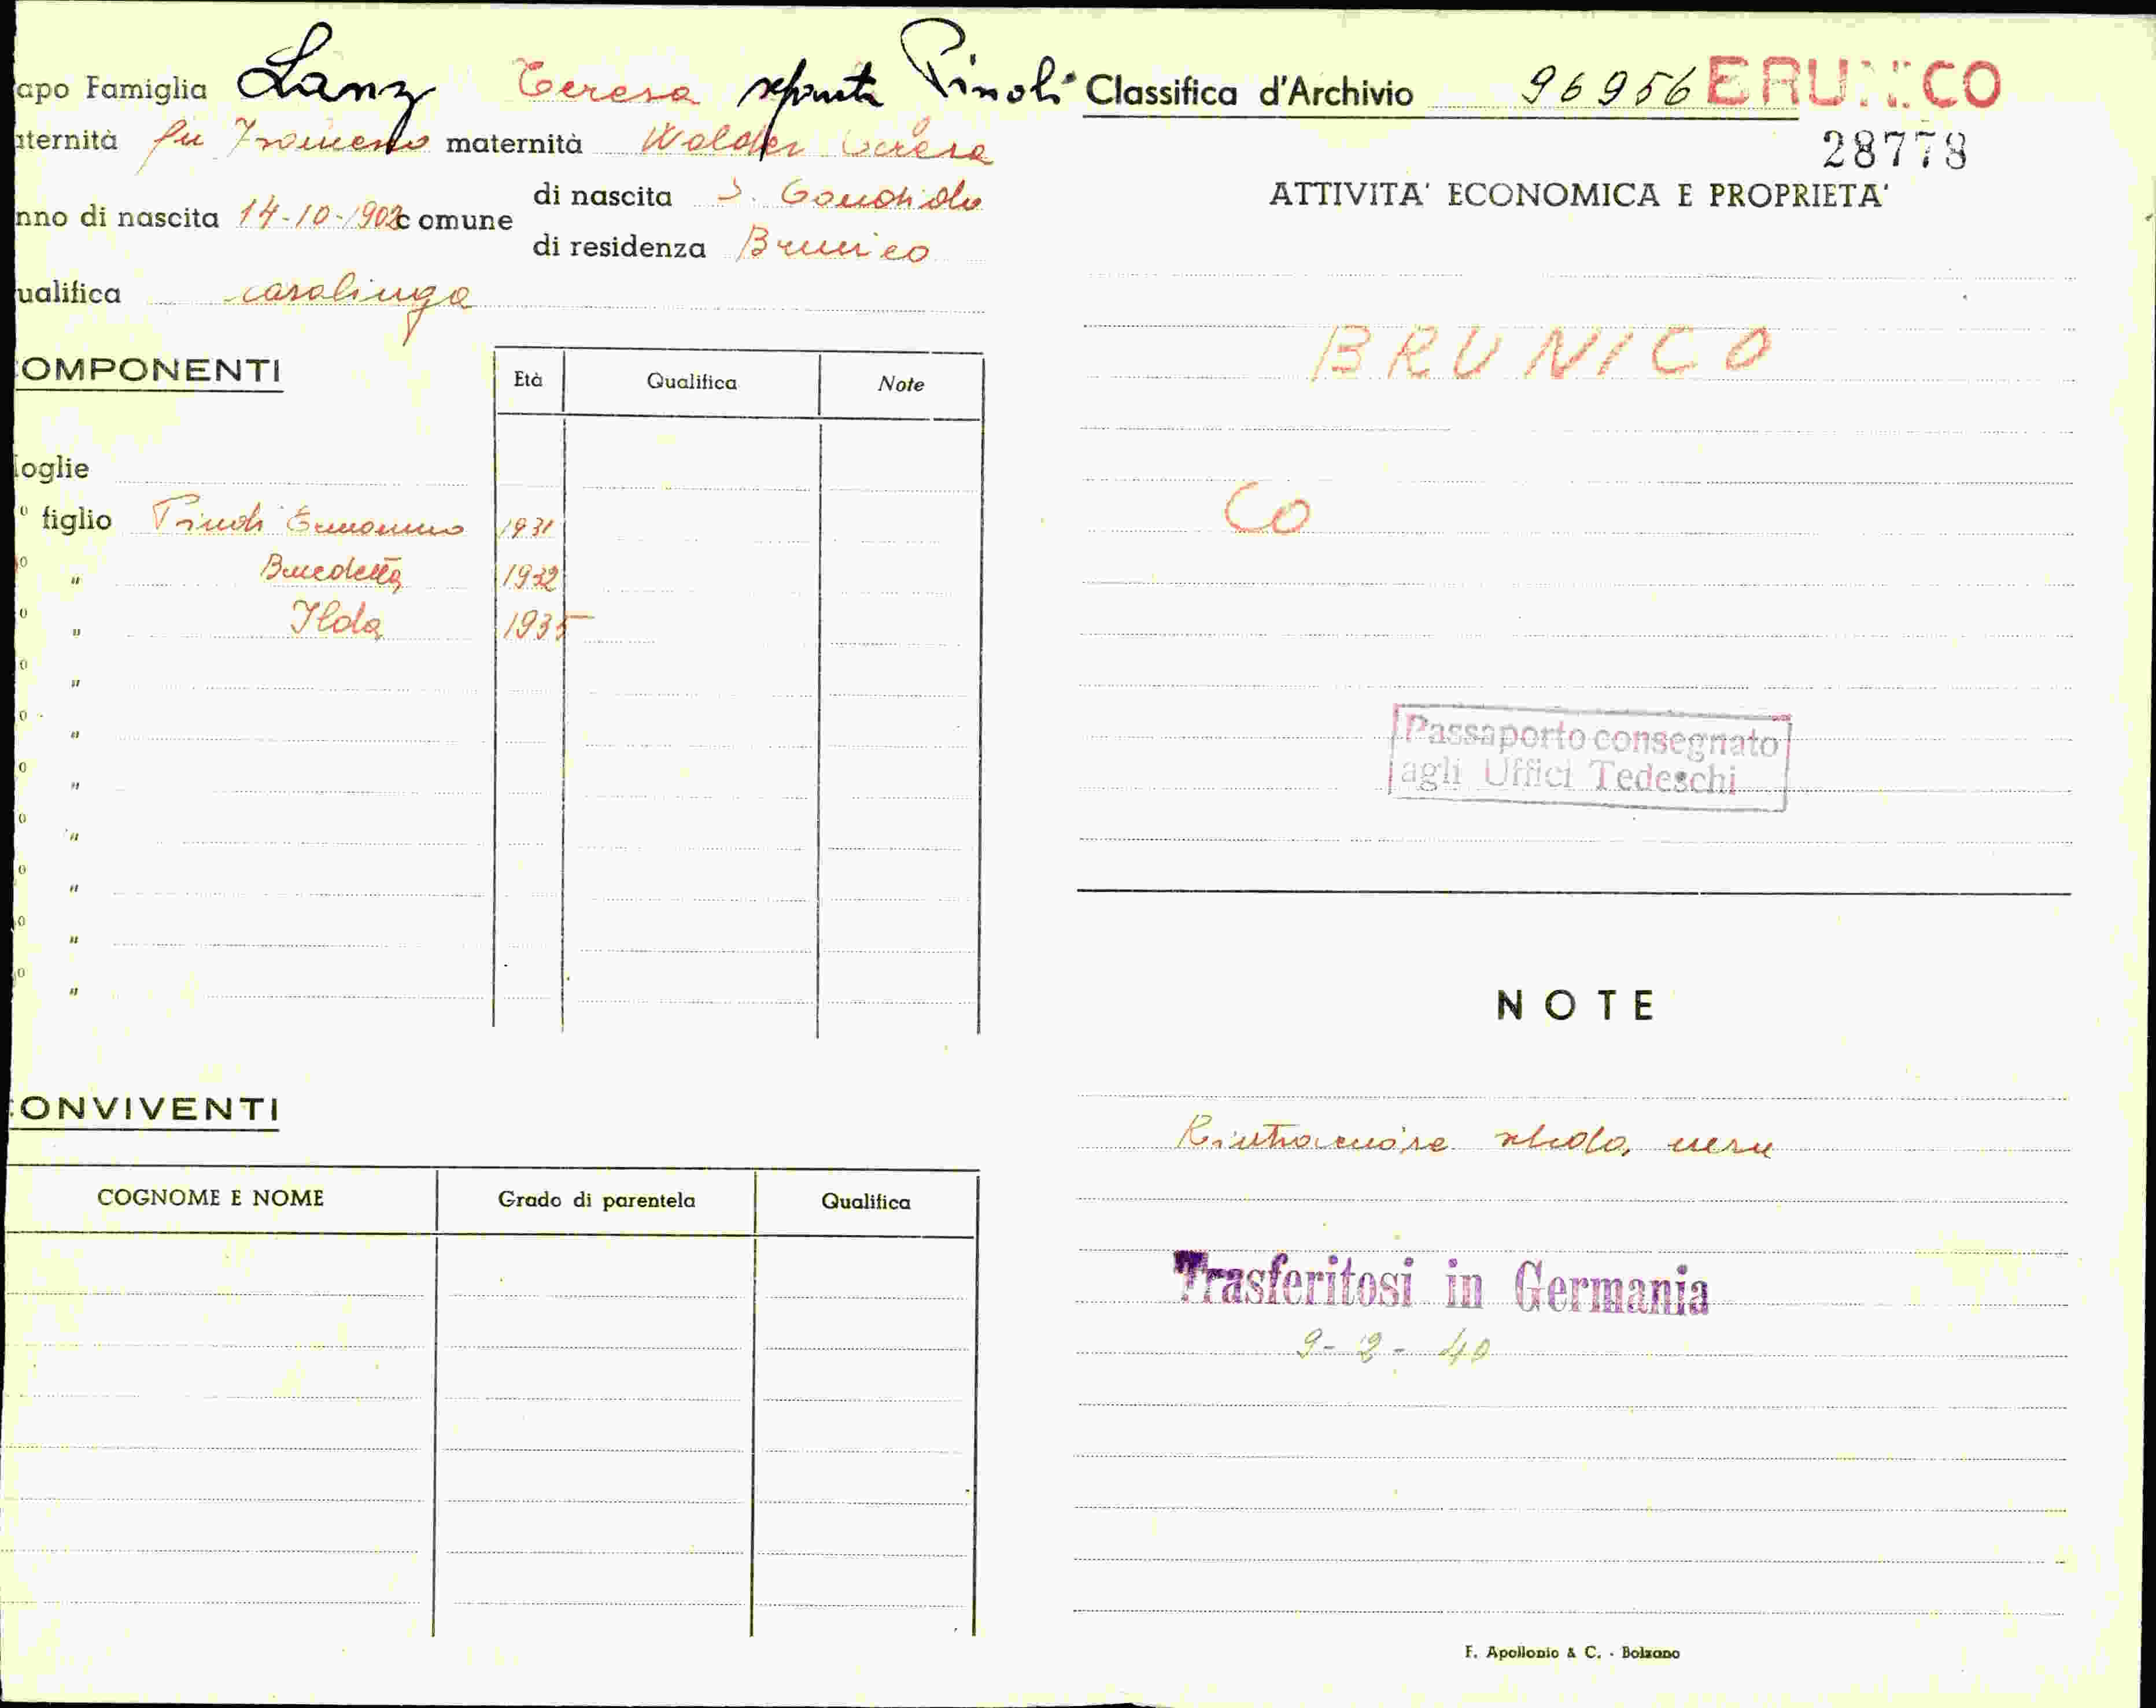 apo Famiglia Lanz Teresa separata Pinoli
aternità fu Francesco maternità Walder Teresa
nno di nascita 14-10-1902 comune
di nascita S. Candido
di residenza Brunico
ualifica casalinga
COMPONENTI
Età Qualifica Note
oglie
° figlio Pinoli Ermanno 1931
o " Benedetta 1932
o " Ilda 1935
o "
o "
o "
o "
o "
o "
o "
CONVIVENTI
COGNOME E NOME Grado di parentela Qualifica
Classifica d'Archivio 96956 BRUNICO
28778
ATTIVITA' ECONOMICA E PROPRIETA'
BRUNICO
Co
Passaporto consegnato
agli Uffici Tedeschi
NOTE
Rintracciare
Trasferitosi in Germania
9-2-40
F. Apollonio & C. - Bolzano